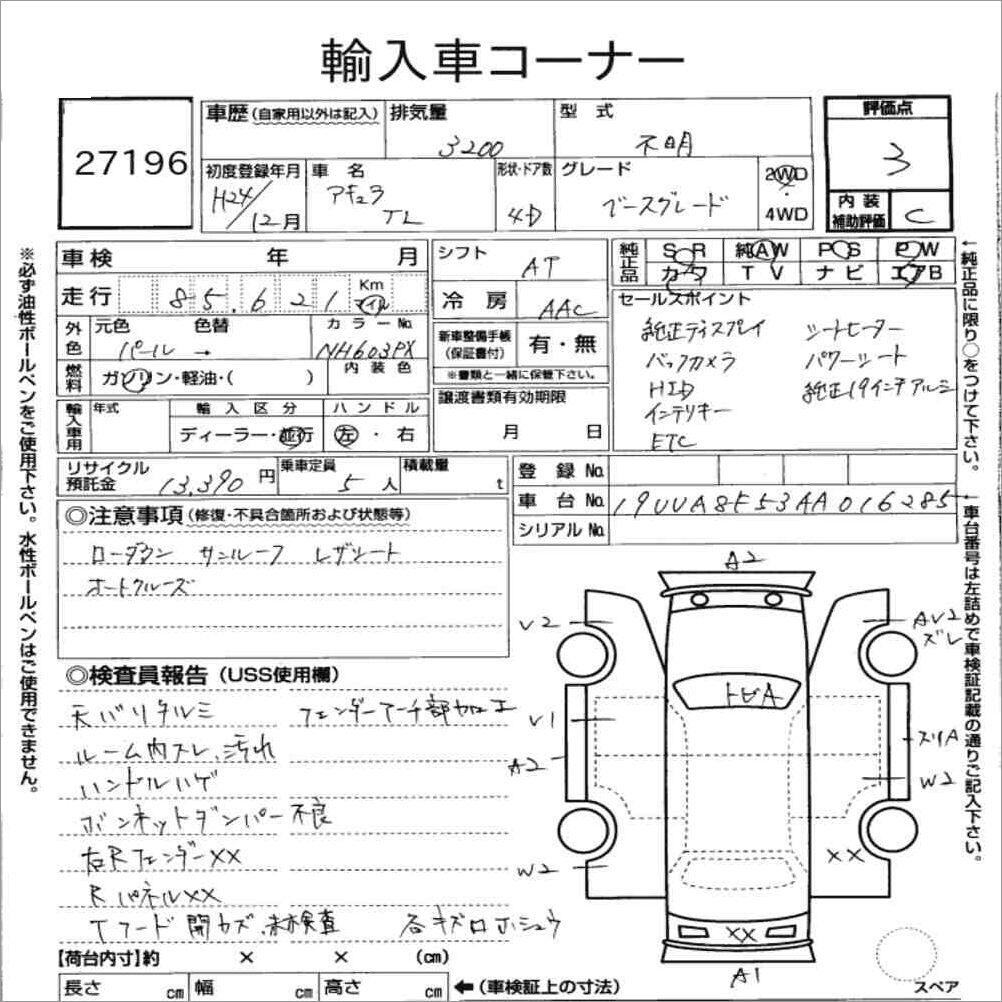 輸入車コーナー
27196
車歴(自家用以外は記入) 排気量 3200 型式 不明
評価点 3
初度登録年月 H24/12月 車名 アキュラ TL 形状・ドア数 4D グレード ベースグレード 2WD・4WD
内装補助評価 C
車検 年 月 シフト AT
純正品 SR 純AW PS PW
カワ TV ナビ エアB
走行 85,621 Km マイル 冷房 AAC
外色 元色 パール → 色替 カラーNo. NH603PX
新車整備手帳(保証書付) 有・無
※書類と一緒に保管下さい。
燃料 ガソリン・軽油・( ) 内装色
譲渡書類有効期限 月 日
輸入車用 年式 輸入区分 ディーラー・並行 ハンドル 左・右
セールスポイント
純正ディスプレイ シートヒーター
バックカメラ パワーシート
HID 純正19インチアルミ
インテリキー
ETC
リサイクル預託金 13,390円 乗車定員 5人 積載量 t
登録No.
車台No. 19UUA8F53AA016285
シリアルNo.
◎注意事項(修復・不具合箇所および状態等)
ローダウン サンルーフ レザシート
オートクルーズ
◎検査員報告(USS使用欄)
天バリタルミ フェンダーアーチ部加工
ルーム内スレ、汚れ
ハンドルハゲ
ボンネットダンパー不良
右RフェンダーXX
RパネルXX
Tフード開カズ、未検査 各キズロホシュウ
【荷台内寸】約 × × (cm)
長さ cm 幅 cm 高さ cm ←(車検証上の寸法)
A2
V2
AV2
ズレ
トビA
V1
スリA
A2
W2
W2
XX
XX
A1
スペア
※必ず油性ボールペンをご使用下さい。水性ボールペンはご使用できません。
←純正品に限り○をつけて下さい。
←車台番号は左詰めで車検証記載の通りご記入下さい。